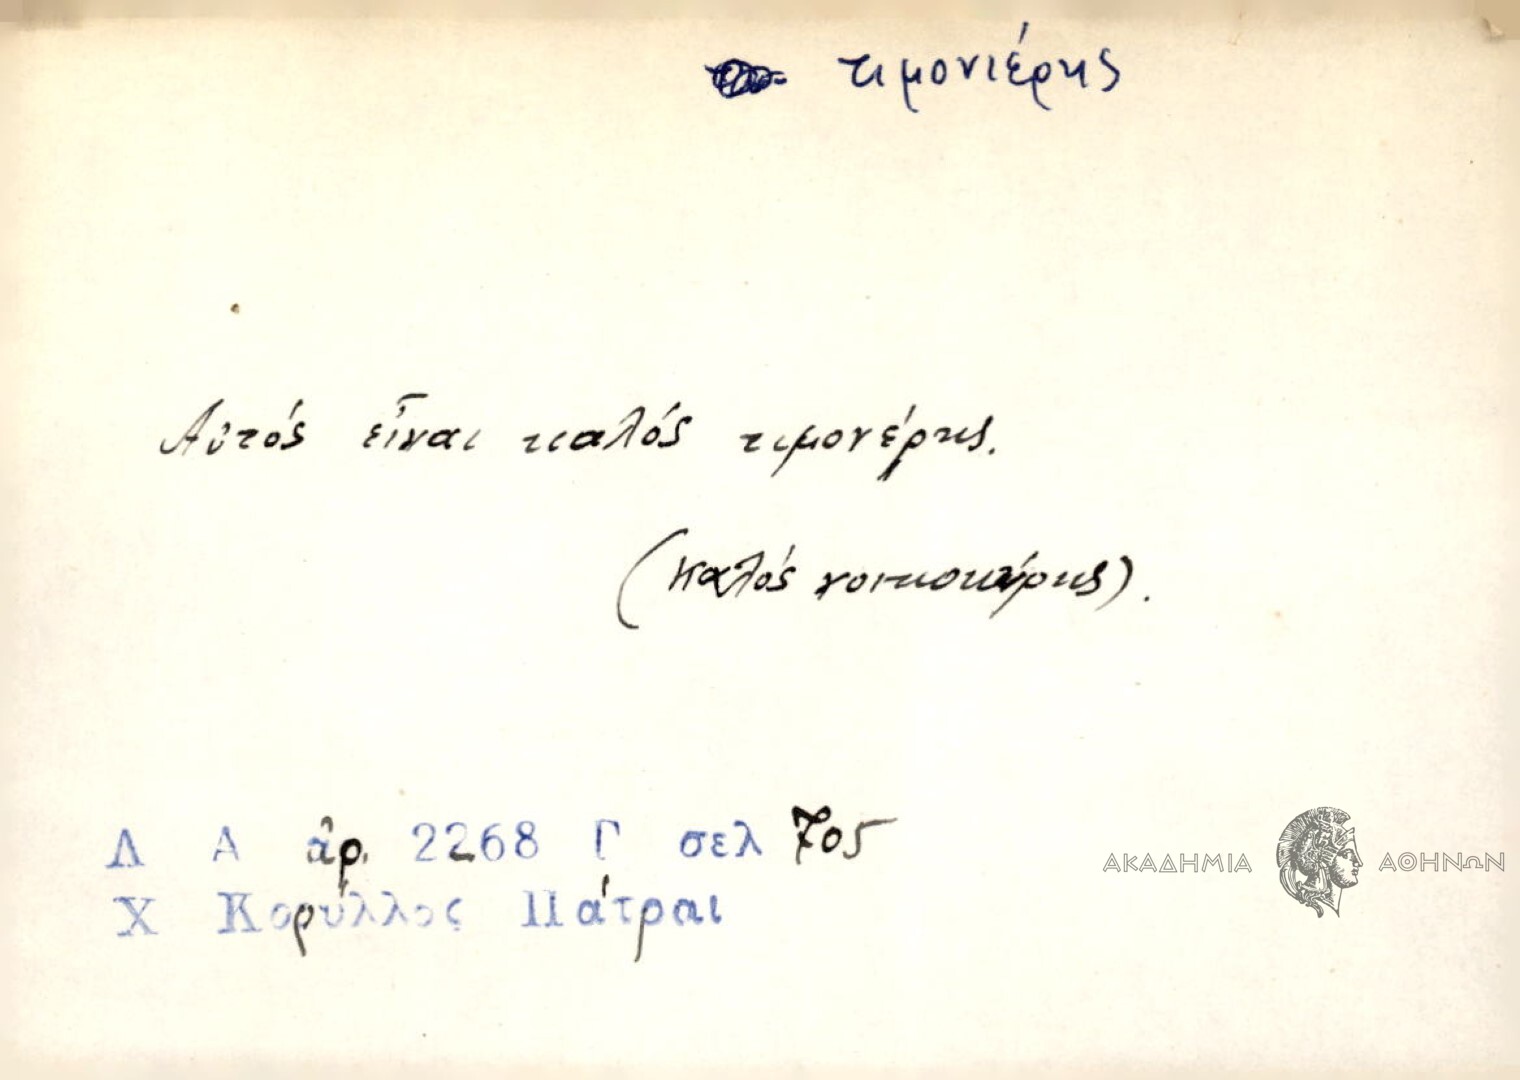 τιμονιέρης
Αὐτός εἶναι καλός τιμονέρης.
(καλός νοικοκύρης).
Λ Α ἀρ. 2268 Γ σελ 705
Χ Κορύλλος Πάτραι
ΑΚΑΔΗΜΙΑ ΑΘΗΝΩΝ